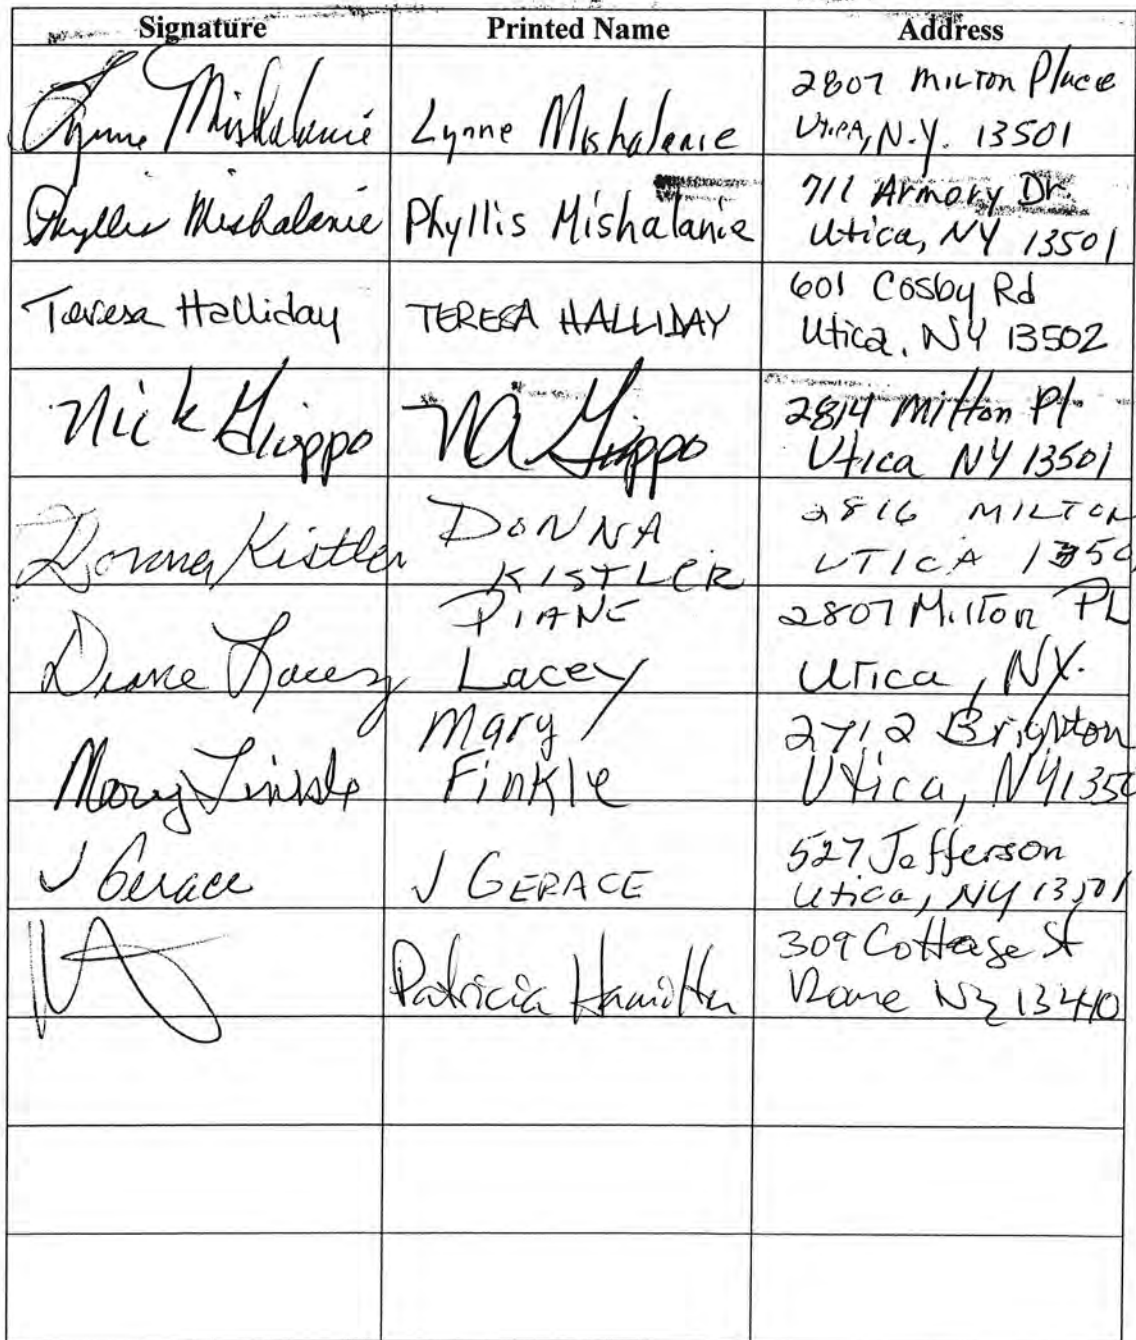 Signature Printed Name Address
Lynne Mishalanie Lynne Mishalanie 2807 Milton Place
Utica, N.Y. 13501
Phyllis Mishalanie Phyllis Mishalanie 711 Armory Dr.
Utica, NY 13501
Teresa Halliday TERESA HALLIDAY 601 Cosby Rd
Utica, NY 13502
Nick 2814 Milton Pl.
Utica NY 13501
Donna Kistler DONNA
KISTLER
2816 MILTON
UTICA 1350
Diane Lacey DIANE
Lacey
2807 Milton PL
Utica, NY.
Mary Finkle Mary
Finkle
2712 Brighton
Utica, NY 1350
J Gerace J GERACE 527 Jefferson
Utica, NY 13501
Patricia Hamilton 309 Cottage St
Rome NY 13440